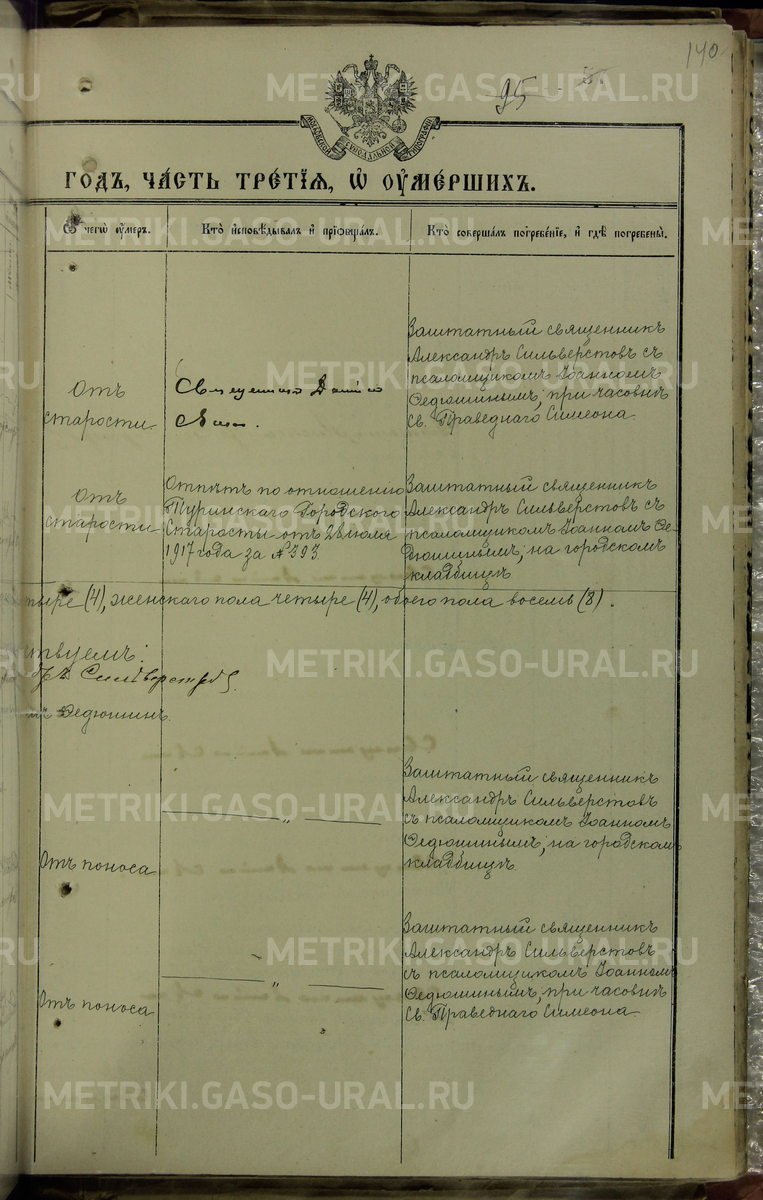 140
95
МОСКОВСКОЙ СѴНОДАЛЬНОЙ ТИПОГРАФІИ
ГОДЪ, ЧАСТЬ ТРЕТІѦ, Ѡ ОУМЕРШИХЪ.
Ѿ чегѡ оумеръ.
Кто исповѣдывалъ и пріѡбщалъ.
Кто совершалъ погребеніе, и гдѣ погребены.
Отъ
старости
Священникъ
Заштатный священникъ
Александръ Сильверстовъ съ
псаломщикомъ Іоанномъ
Ѳедюшинымъ, при часовнѣ
Св. Праведнаго Симеона
Отъ
старости
Отпѣтъ по отношенію
Туринскаго Городского
Старосты отъ 28 іюля
1917 года за № 393.
Заштатный священникъ
Александръ Сильверстовъ съ
псаломщикомъ Іоанномъ Ѳе-
дюшинымъ, на городскомъ
кладбищѣ
тыре (4), женскаго пола четыре (4), обоего пола восемь (8).
твуемъ:
Сильверстовъ
Ѳедюшинъ.
Отъ поноса
— „ —
Заштатный священникъ
Александръ Сильверстовъ
съ псаломщикомъ Іоанномъ
Ѳедюшинымъ, на городскомъ
кладбищѣ
Отъ поноса
— „ —
Заштатный священникъ
Александръ Сильверстовъ
съ псаломщикомъ Іоанномъ
Ѳедюшинымъ, при часовнѣ
Св. Праведнаго Симеона
METRIKI.GASO-URAL.RU